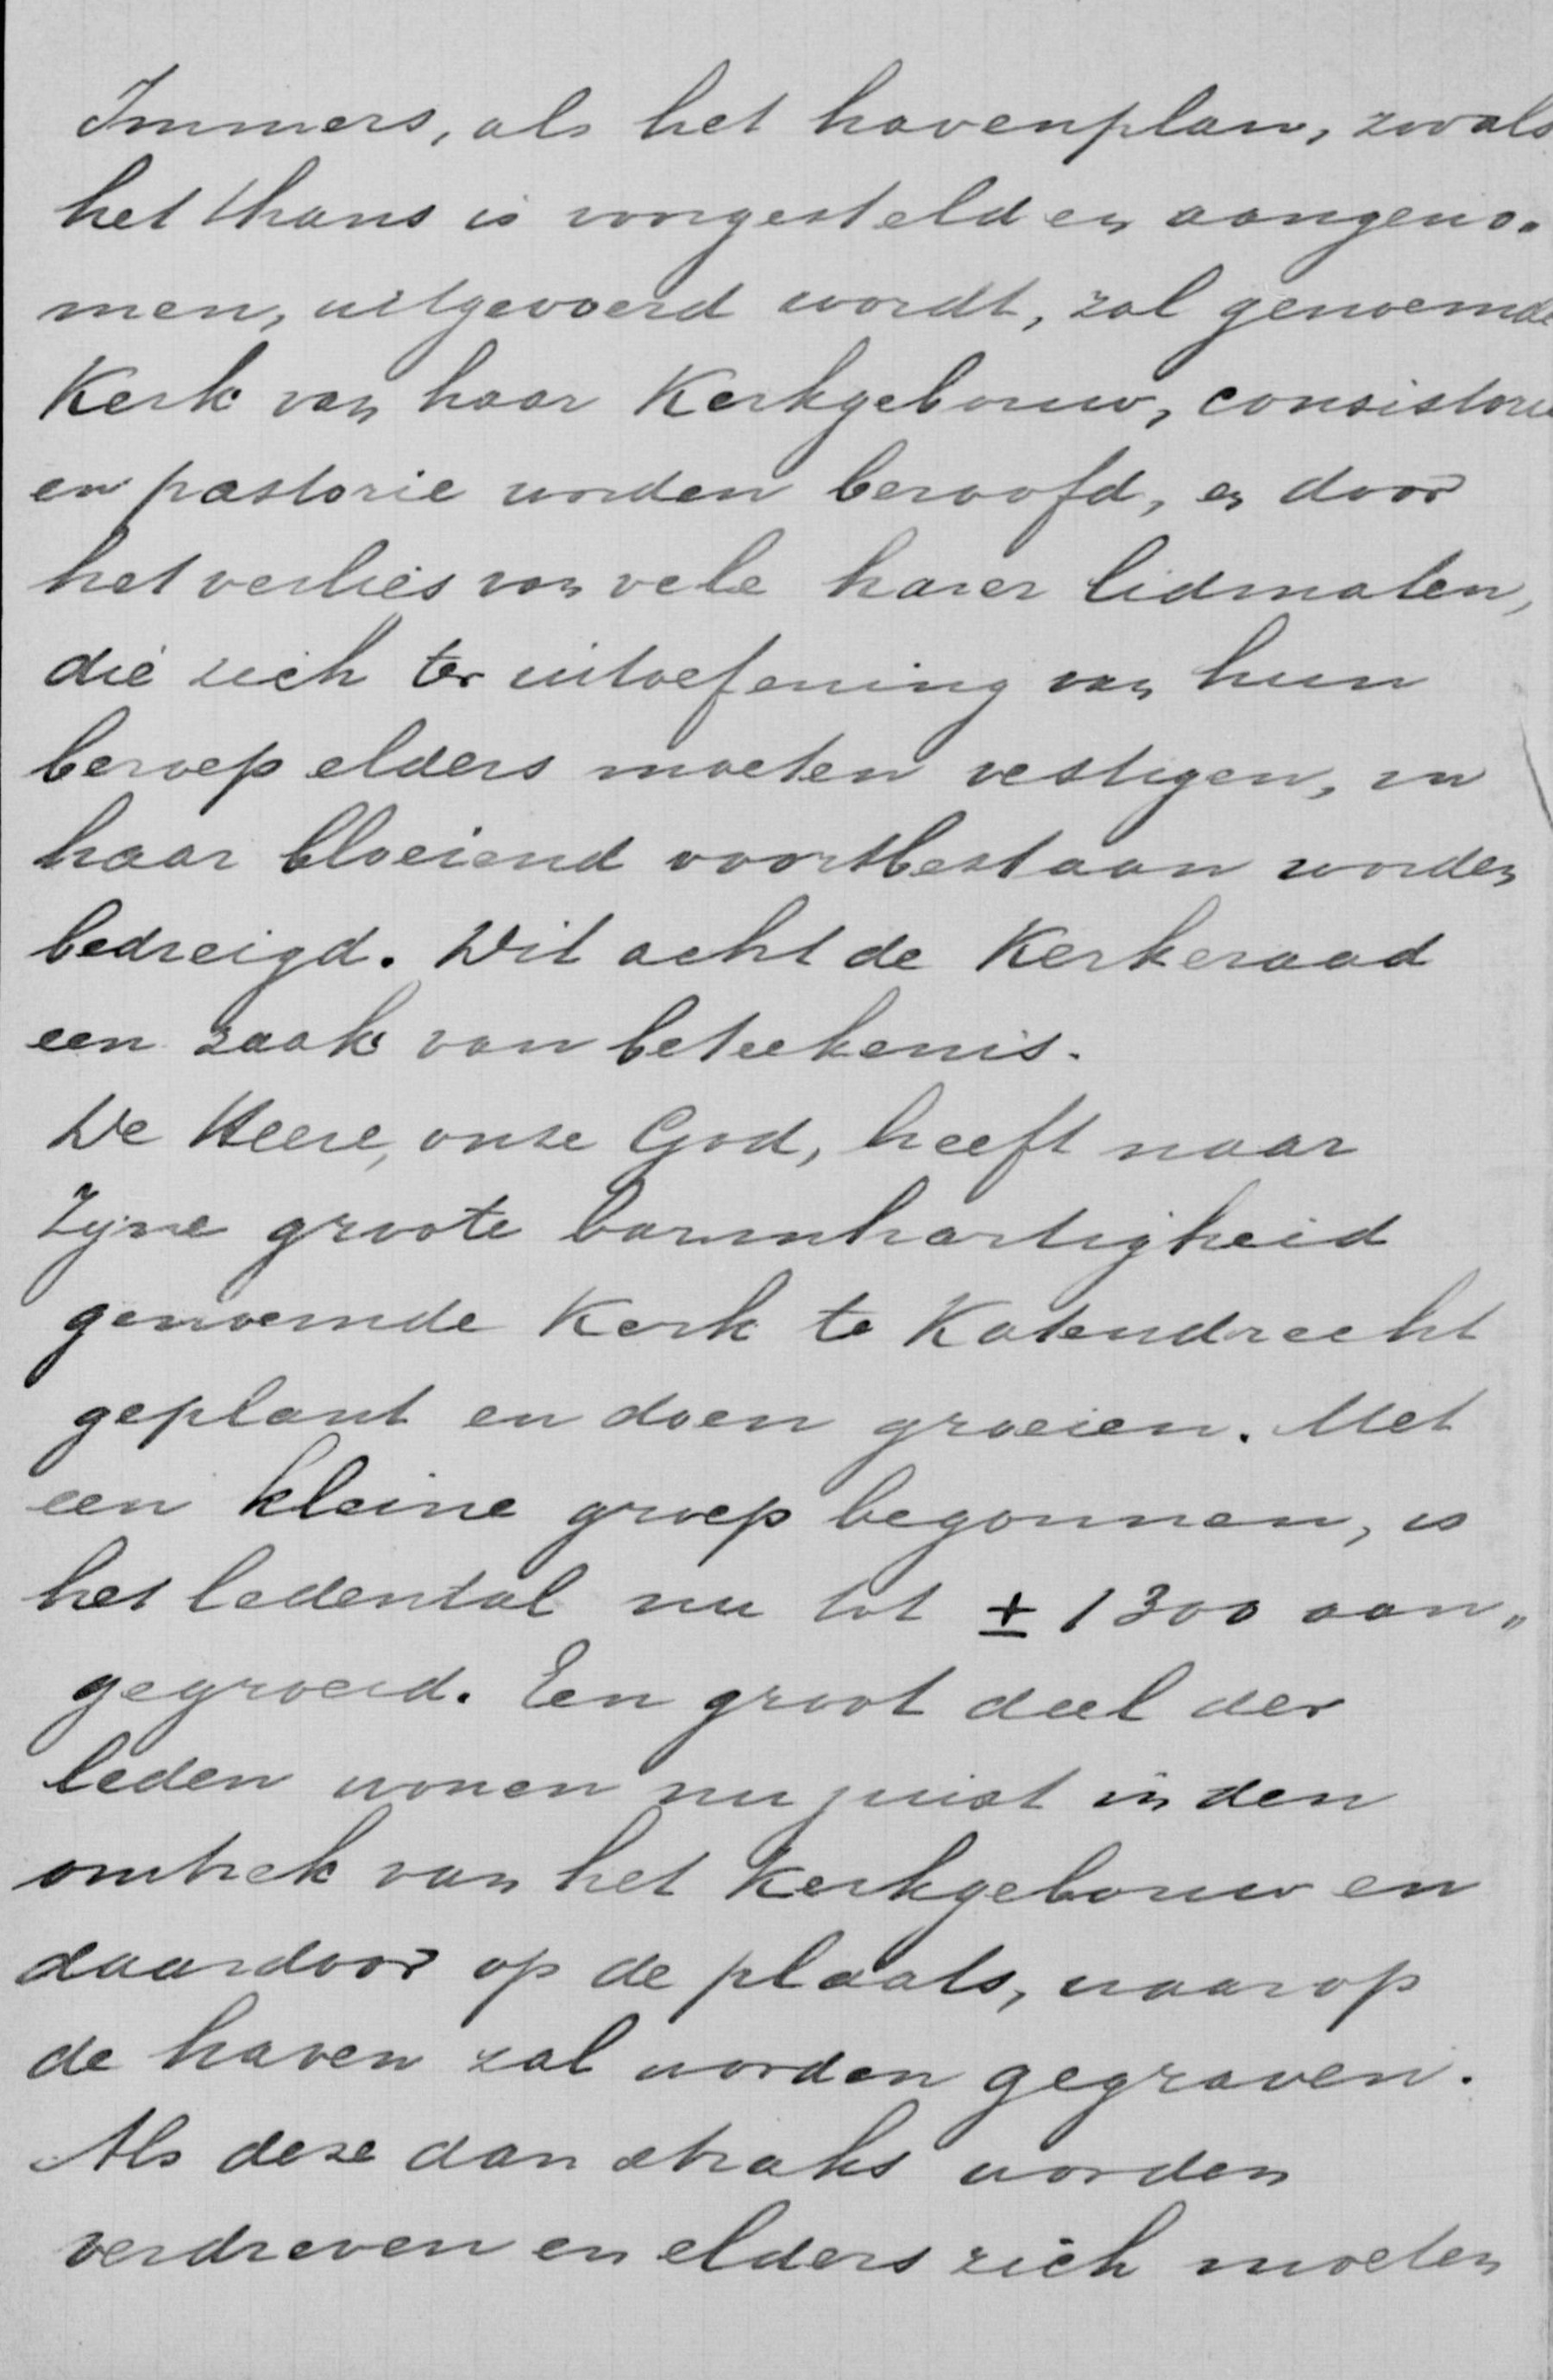 Immers, als het havenplan, zooals
het thans is voorgesteld en aangeno-
men, uitgevoerd wordt, zal genoemde
Kerk van haar Kerkgebouw, consistorie
en pastorie worden beroofd, en door
het verlies van vele harer lidmaten,
die zich ter uitoefening van hun
beroep elders moeten vestigen, in
haar bloeiend voortbestaan worden
bedreigd. Dit acht de Kerkeraad
een zaak van beteekenis.
De Heere, onze God, heeft naar
Zijne groote barmhartigheid
genoemde Kerk te Katendrecht
geplant en doen groeien. Met
een kleine groep begonnen, is
het ledental nu tot ± 1300 aan„
gegroeid. Een groot deel der
leden wonen nu juist in den
omtrek van het Kerkgebouw en
daardoor op de plaats, waarop
de haven zal worden gegraven.
Als deze dan straks worden
verdreven en elders zich moeten